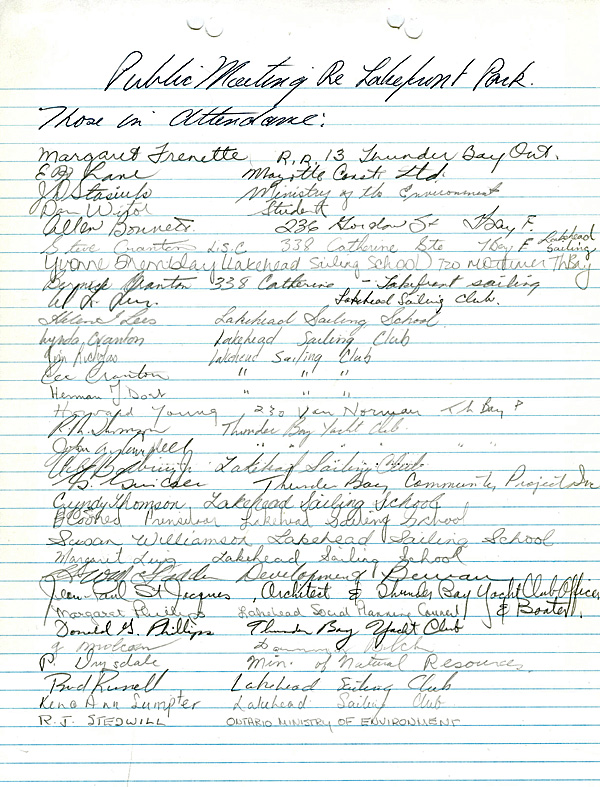 Public Meeting Re Lakefront Park.
Those in Attendance:
Margaret Frenette R.R. 13 Thunder Bay Ont.
E B Kane Const. Ltd.
J Stasiuk Ministry of the Environment
Don Student
Allen Bonnett 236 Gordon St TBay F.
Steve Cranton L.S.C 338 Catherine Tbay F Lakehead Sailing
Yvonne Tremblay (Lakehead Sailing School) 720 Mortimer ThBay
Cranton 338 Catherine - Lakefront sailing
Lakehead Sailing Club.
Helen Lees Lakehead Sailing School
Lynda Cranton Lakehead Sailing Club
Nicholas Lakehead Sailing Club
Cec Cranton " " "
Herman J Dost " " "
Howard Young 230 Van Norman Th Bay P
R.H. Thompson Thunder Bay Yacht Club
John Campbell " " " " "
Lakehead Sailing Club
Thunder Bay Community Project Inc
Cyndy Thomson Lakehead Sailing School
Lakehead Sailing School
Susan Williamson Lakehead Sailing School
Margaret Lakehead Sailing School
Development
Jean-Paul St. Jacques, Architect & Thunder Bay Yacht Club Officer
& Boater.
Margaret Phillips Lakehead Social Planning Council
Donald G. Phillips Thunder Bay Yacht Club
P. Drysdale Min. of Natural Resources.
Bud Russell Lakehead Sailing Club
Ann Sumpter Lakehead Sailing Club
R.J. STEDWILL ONTARIO MINISTRY OF ENVIRONMENT